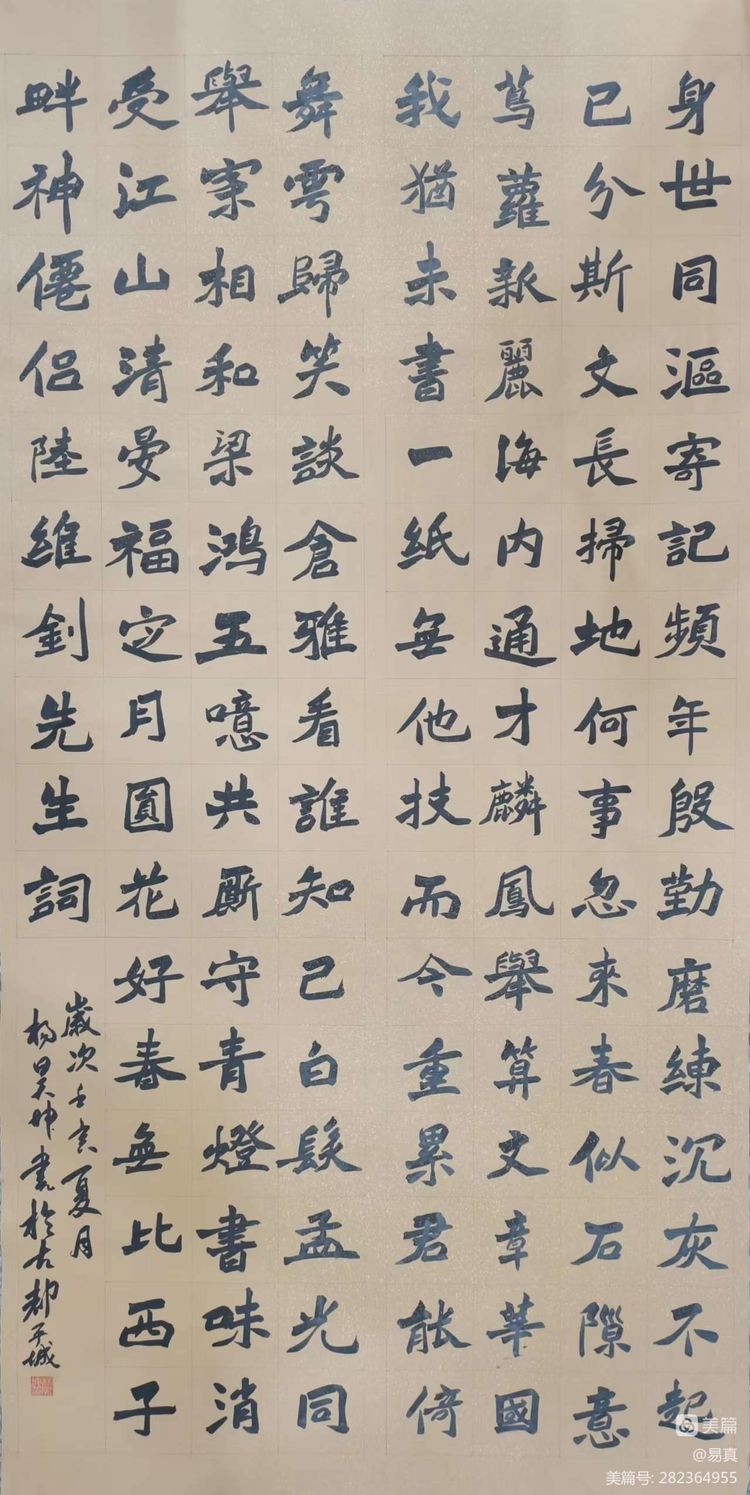 身世同漚寄記頻年殷勤磨練沉灰不起
已分斯文長掃地何事忽來春似石隙意
蔦蘿新麗海内通才麟鳳舉算文章華國
我猶未書一紙無他技而今重累君能倚
舞雩歸笑談倉雅看誰知己白髮孟光同
舉案相和梁鴻五噫共廝守青燈書味消
受江山清晏福定月圓花好春無比西子
畔神僊侣陸維釗先生詞
歲次壬寅夏月
楊昊坤書於古都平城
美篇
@易真
美篇号: 282364955